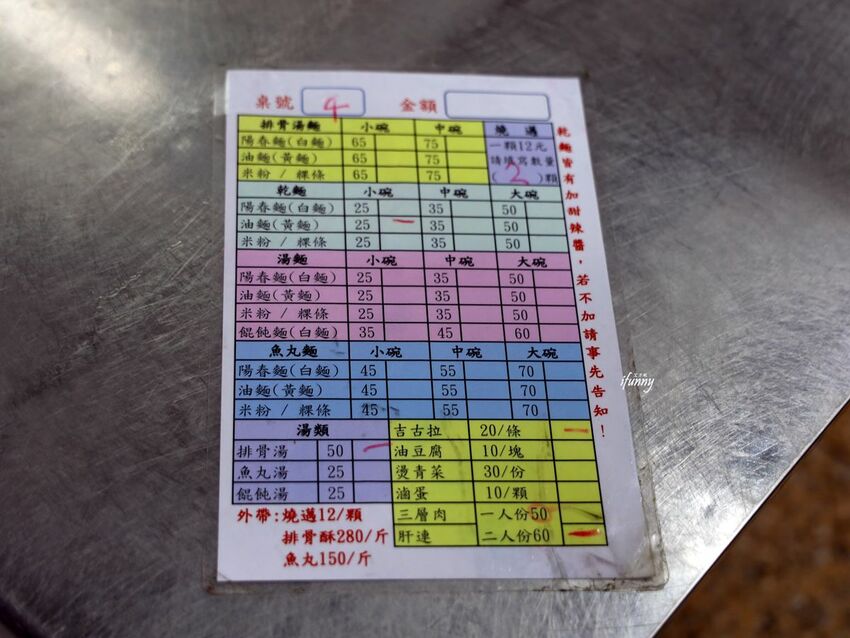 桌號 4 金額
排骨湯麵 小碗 中碗
陽春麵(白麵) 65 75
油麵(黃麵) 65 75
米粉 / 粿條 65 75
燒邁
一顆12元
請填寫數量
( 2 )顆
乾麵 小碗 中碗 大碗
陽春麵(白麵) 25 35 50
油麵(黃麵) 25 一 35 50
米粉 / 粿條 25 35 50
湯麵 小碗 中碗 大碗
陽春麵(白麵) 25 35 50
油麵(黃麵) 25 35 50
米粉 / 粿條 25 35 50
餛飩麵(白麵) 35 45 60
魚丸麵 小碗 中碗 大碗
陽春麵(白麵) 45 55 70
油麵(黃麵) 45 55 70
米粉 / 粿條 45 55 70
湯類
排骨湯 50 一
魚丸湯 25
餛飩湯 25
吉古拉 20/條 一
油豆腐 10/塊
燙青菜 30/份
滷蛋 10/顆
三層肉 一人份50
肝連 二人份60 一
外帶:燒邁12/顆
排骨酥280/斤
魚丸150/斤
乾麵皆有加甜辣醬，若不加請事先告知!
ifunny